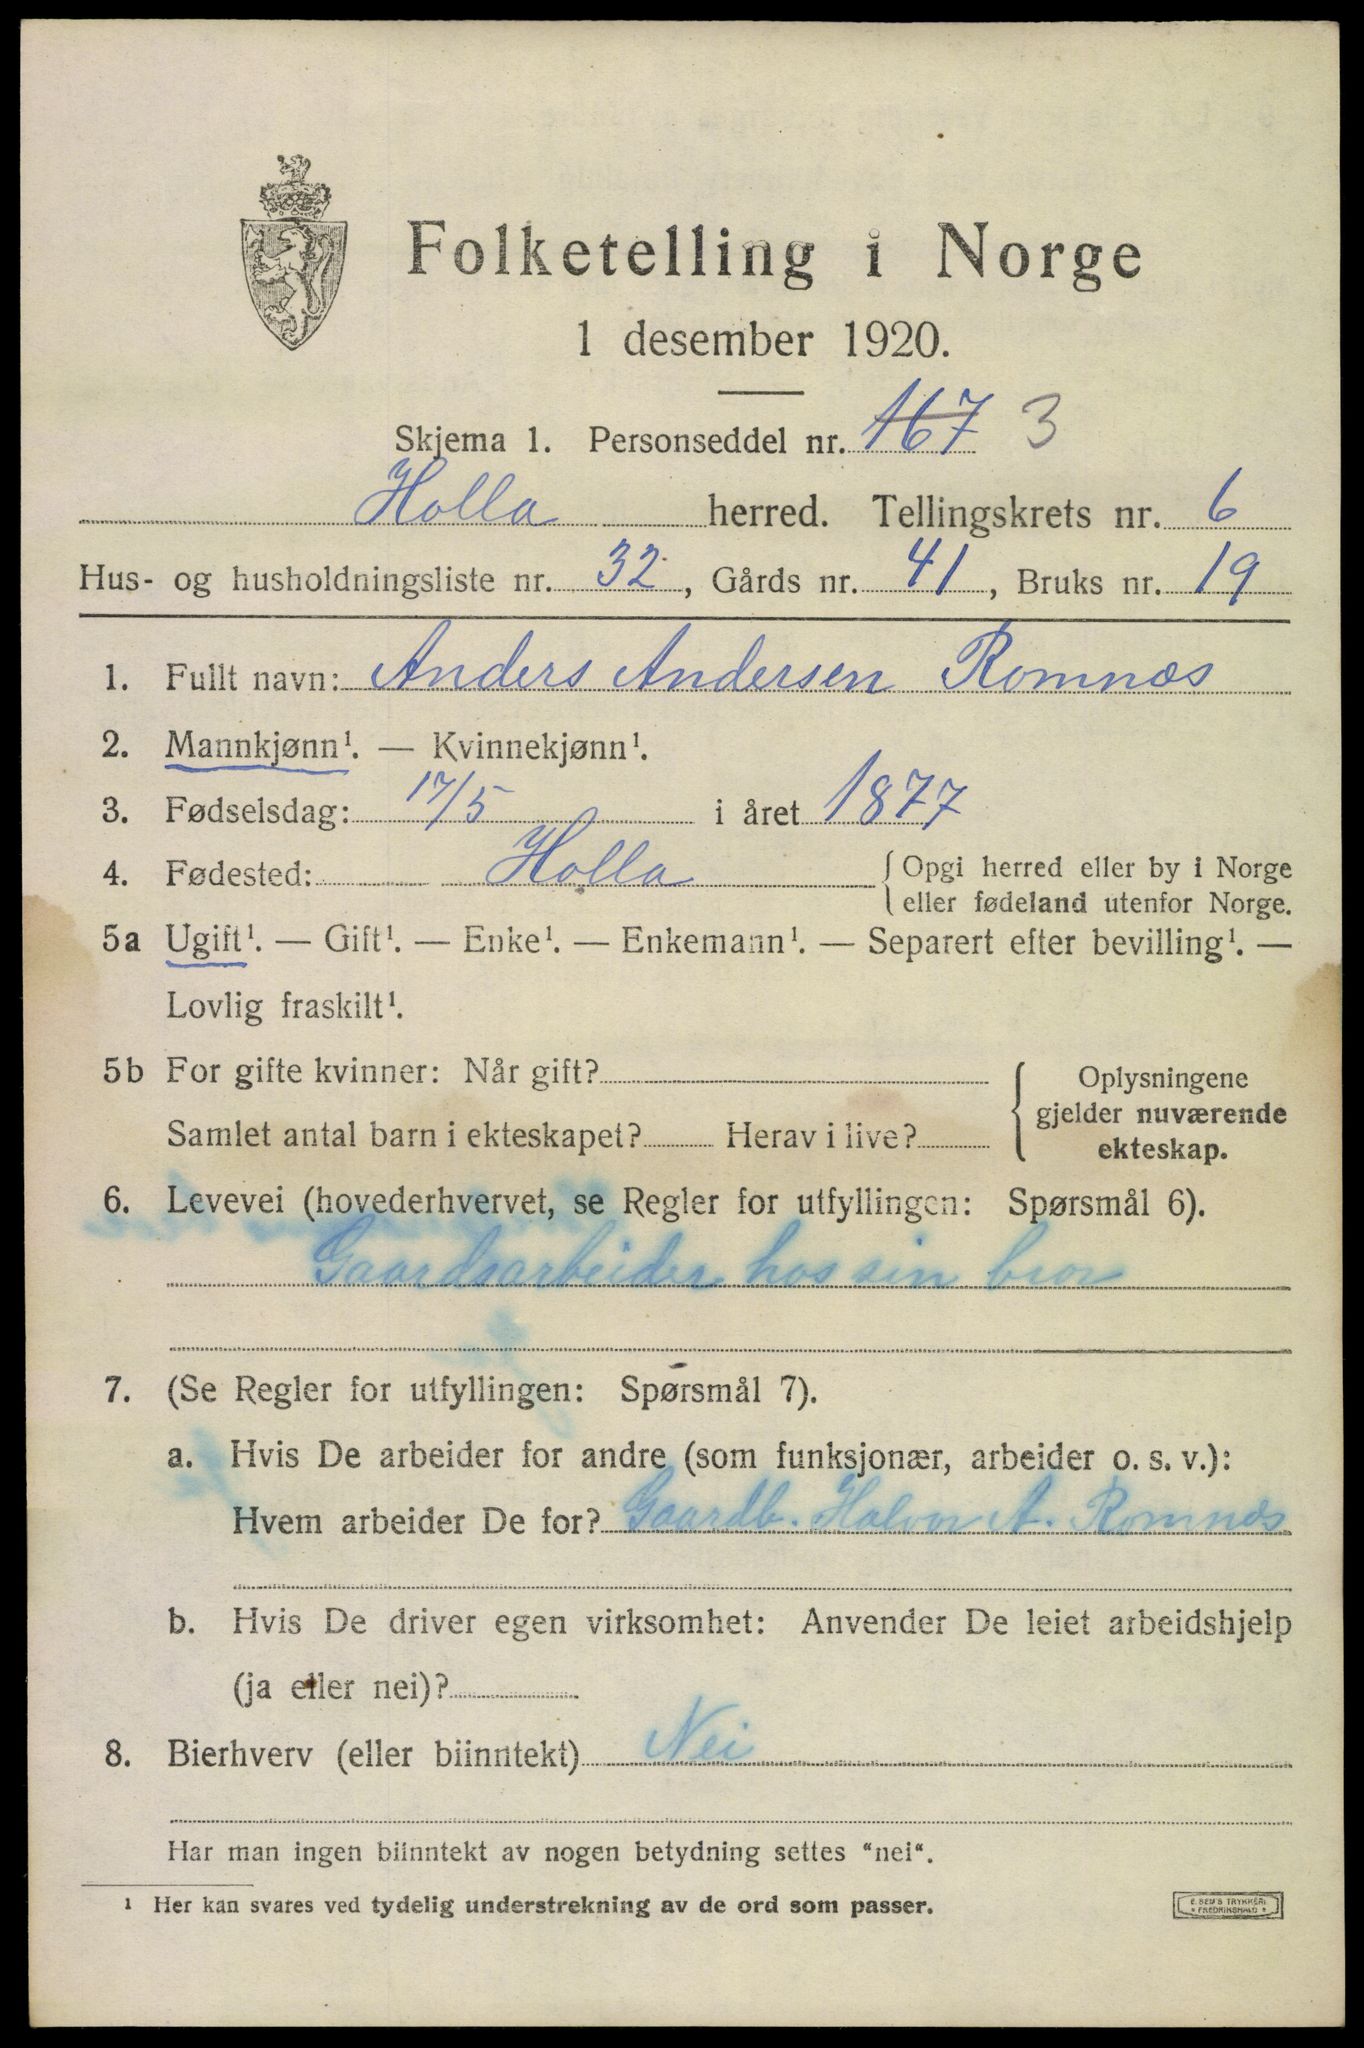 Folketelling i Norge
1 desember 1920.
Skjema 1. Personseddel nr. 167 3
Holla herred. Tellingskrets nr. 6
Hus- og husholdningsliste nr. 32, Gårds nr. 41, Bruks nr. 19
1. Fullt navn: Anders Andersen Romnæs
2. Mannkjønn¹. — Kvinnekjønn¹.
3. Fødselsdag: 17/5 i året 1877
4. Fødested: Holla { Opgi herred eller by i Norge
eller fødeland utenfor Norge.
5a Ugift¹. — Gift¹. — Enke¹. — Enkemann¹. — Separert efter bevilling¹. —
Lovlig fraskilt¹.
5b For gifte kvinner: Når gift?
Samlet antal barn i ekteskapet? Herav i live?
{ Oplysningene
gjelder nuværende
ekteskap.
6. Levevei (hovederhvervet, se Regler for utfyllingen: Spørsmål 6).
Gaardsarbeider hos sin bror
7. (Se Regler for utfyllingen: Spørsmål 7).
a. Hvis De arbeider for andre (som funksjonær, arbeider o. s. v.):
Hvem arbeider De for? Gaardb. Halvor A. Romnæs
b. Hvis De driver egen virksomhet: Anvender De leiet arbeidshjelp
(ja eller nei)?
8. Bierhverv (eller biinntekt) Nei
Har man ingen biinntekt av nogen betydning settes "nei".
¹ Her kan svares ved tydelig understrekning av de ord som passer.
E. SEM'S TRYKKERI
* FREDRIKSHALD *